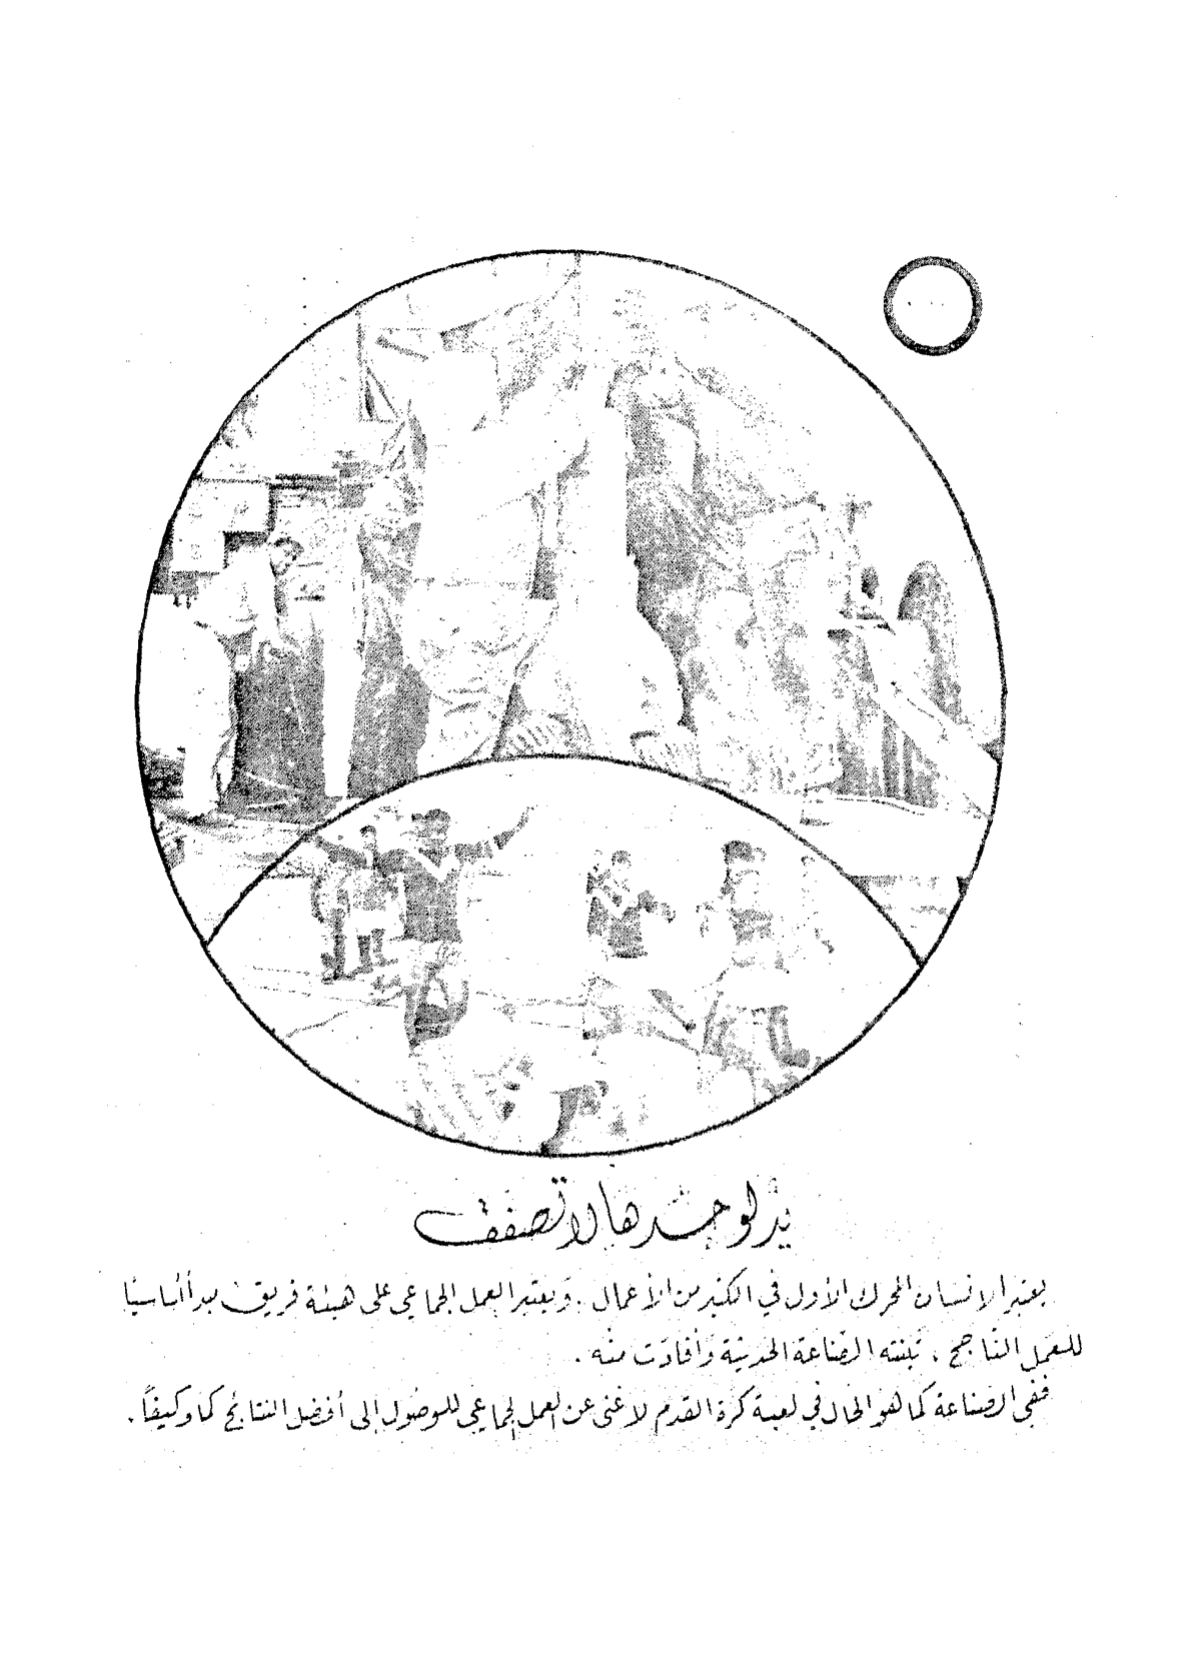 يد لوحدها لا تصفق
يعتبر الانسان المحرك الأول في الكثير من الأعمال . ويعتبر العمل الجماعي على هيئة فريق مبدأ أساسيًا
للعمل الناجح ، تبنته الصناعة الحديثة وأفادت منه .
ففي الصناعة كما هو الحال في لعبة كرة القدم لا غنى عن العمل الجماعي للوصول إلى أفضل النتائج كما وكيفاً .